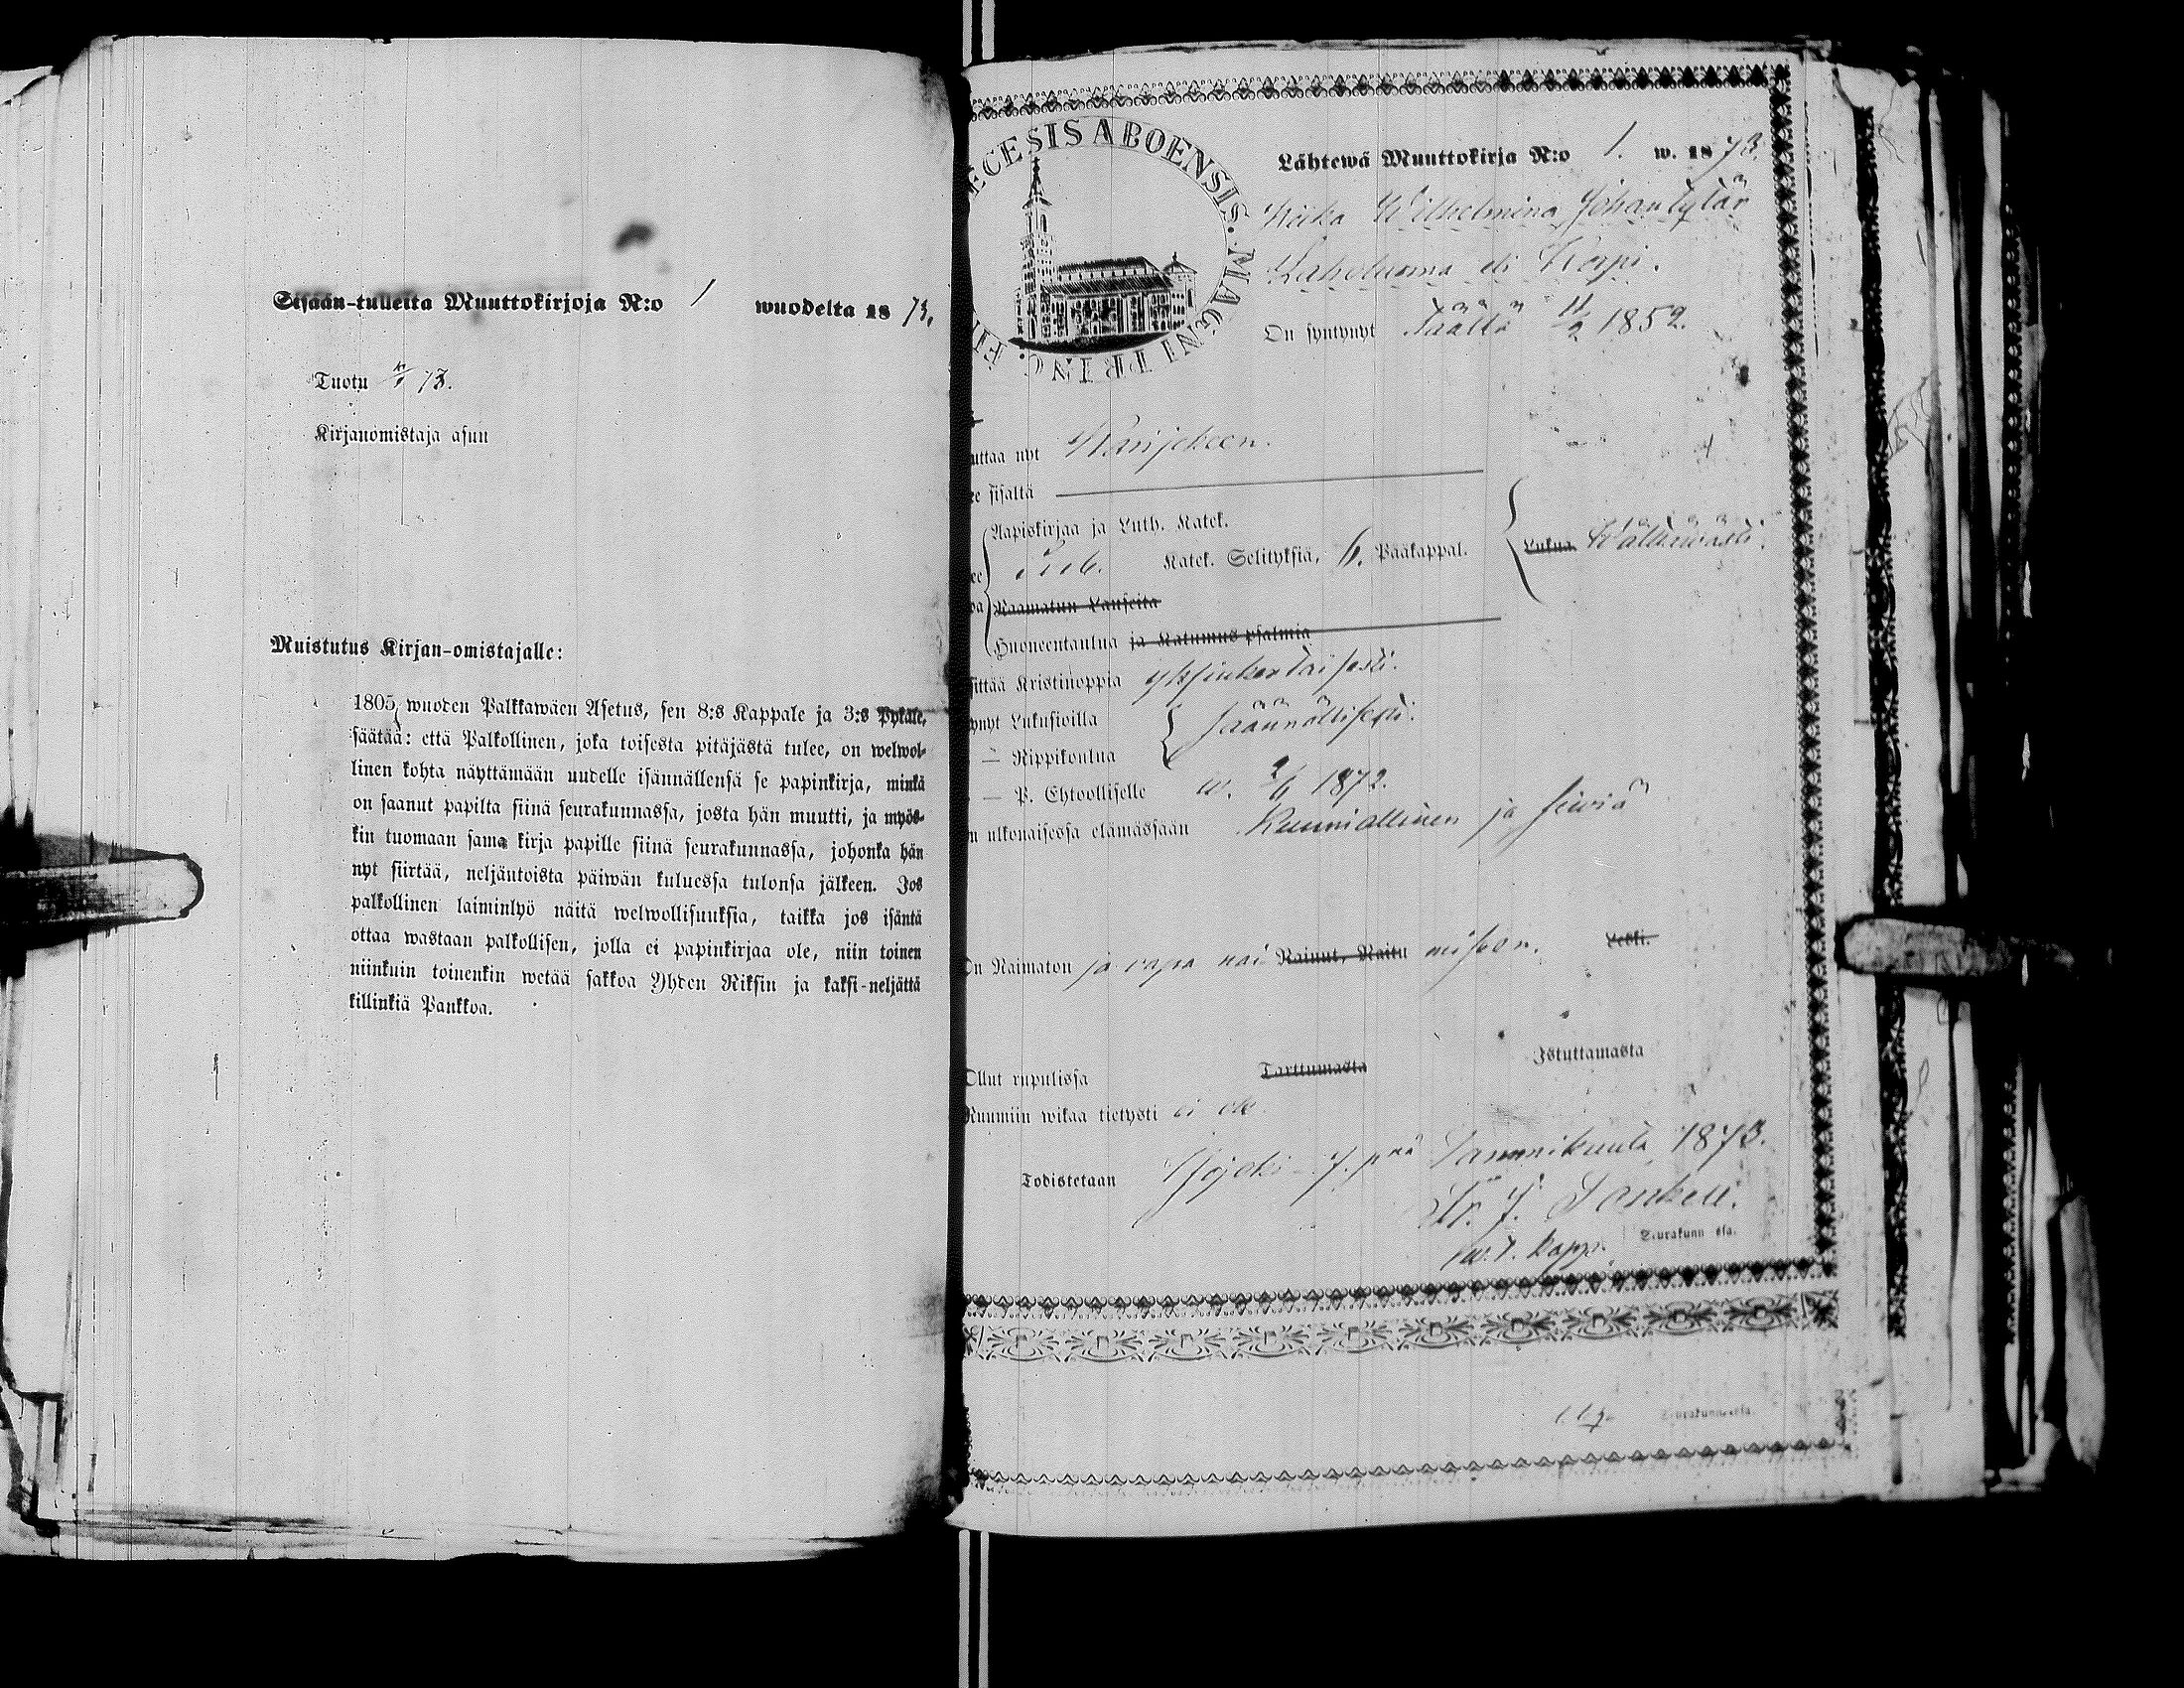 Sisään-tulleita Muuttokirjoja N:o 1 wuodelta 1873.
Tuotu 73.
Kirjanomistaja asuu
Muistutus Kirjan-omistajalle:
1805 wuoden Palkkawäen Asetus, sen 8:s Kappale ja 3:s Pykäle,
säätää: että Palkollinen, joka toisesta pitäjästä tulee, on welwol-
linen kohta näyttämään uudelle isännällensä se papinkirja, minkä
on saanut papilta siinä seurakunnassa, josta hän muutti, ja myös-
kin tuomaan sama kirja papille siinä seurakunnassa, johonka hän
nyt siirtää, neljäntoista päiwän kuluessa tulonsa jälkeen. Jos
palkollinen laiminlyö näitä welwollisuuksia, taikka jos isäntä
ottaa wastaan palkollisen, jolla ei papinkirjaa ole, niin toinen
niinkuin toinenkin wetää sakkoa Yhden Riksin ja kaksi-neljättä
killinkiä Pankkoa.
ECESIS ABOENSIS. MAGNI PRINC. FI
Lähtewä Muuttokirja N:o 1. w. 1873.
Piika Wilhelmina Johantytär
eli Korpi.
On syntynyt Täällä 11/2 1852.
uttaa nyt
ee sisältä
Aapiskirjaa ja Luth. Katek.
Katek. Selityksiä, 6. Pääkappal.
Lukua Wälttäwästi.
Raamatun Lauseita
Huoneentaulua ja Katumus psalmia
sittää Kristinoppia yksinkertaisesti.
ynyt Lukusioilla säännöllisesti.
— Rippikoulua
— P. Ehtoolliselle w. 2/6 1872.
n ulkonaisessa elämässään Kunniallinen ja siwiä
On Naimaton ja vapa nai Nainut, Naitu miseen. Leski.
Ollut rupulissa Tarttumasta Istuttamasta
Ruumiin wikaa tietysti ei ole
Todistetaan 7. pnä Tammikuuta 1873.
Fr. J. Sankell.
w.t. Kapp. Seurakunn esa.
Seurakunnanesa.